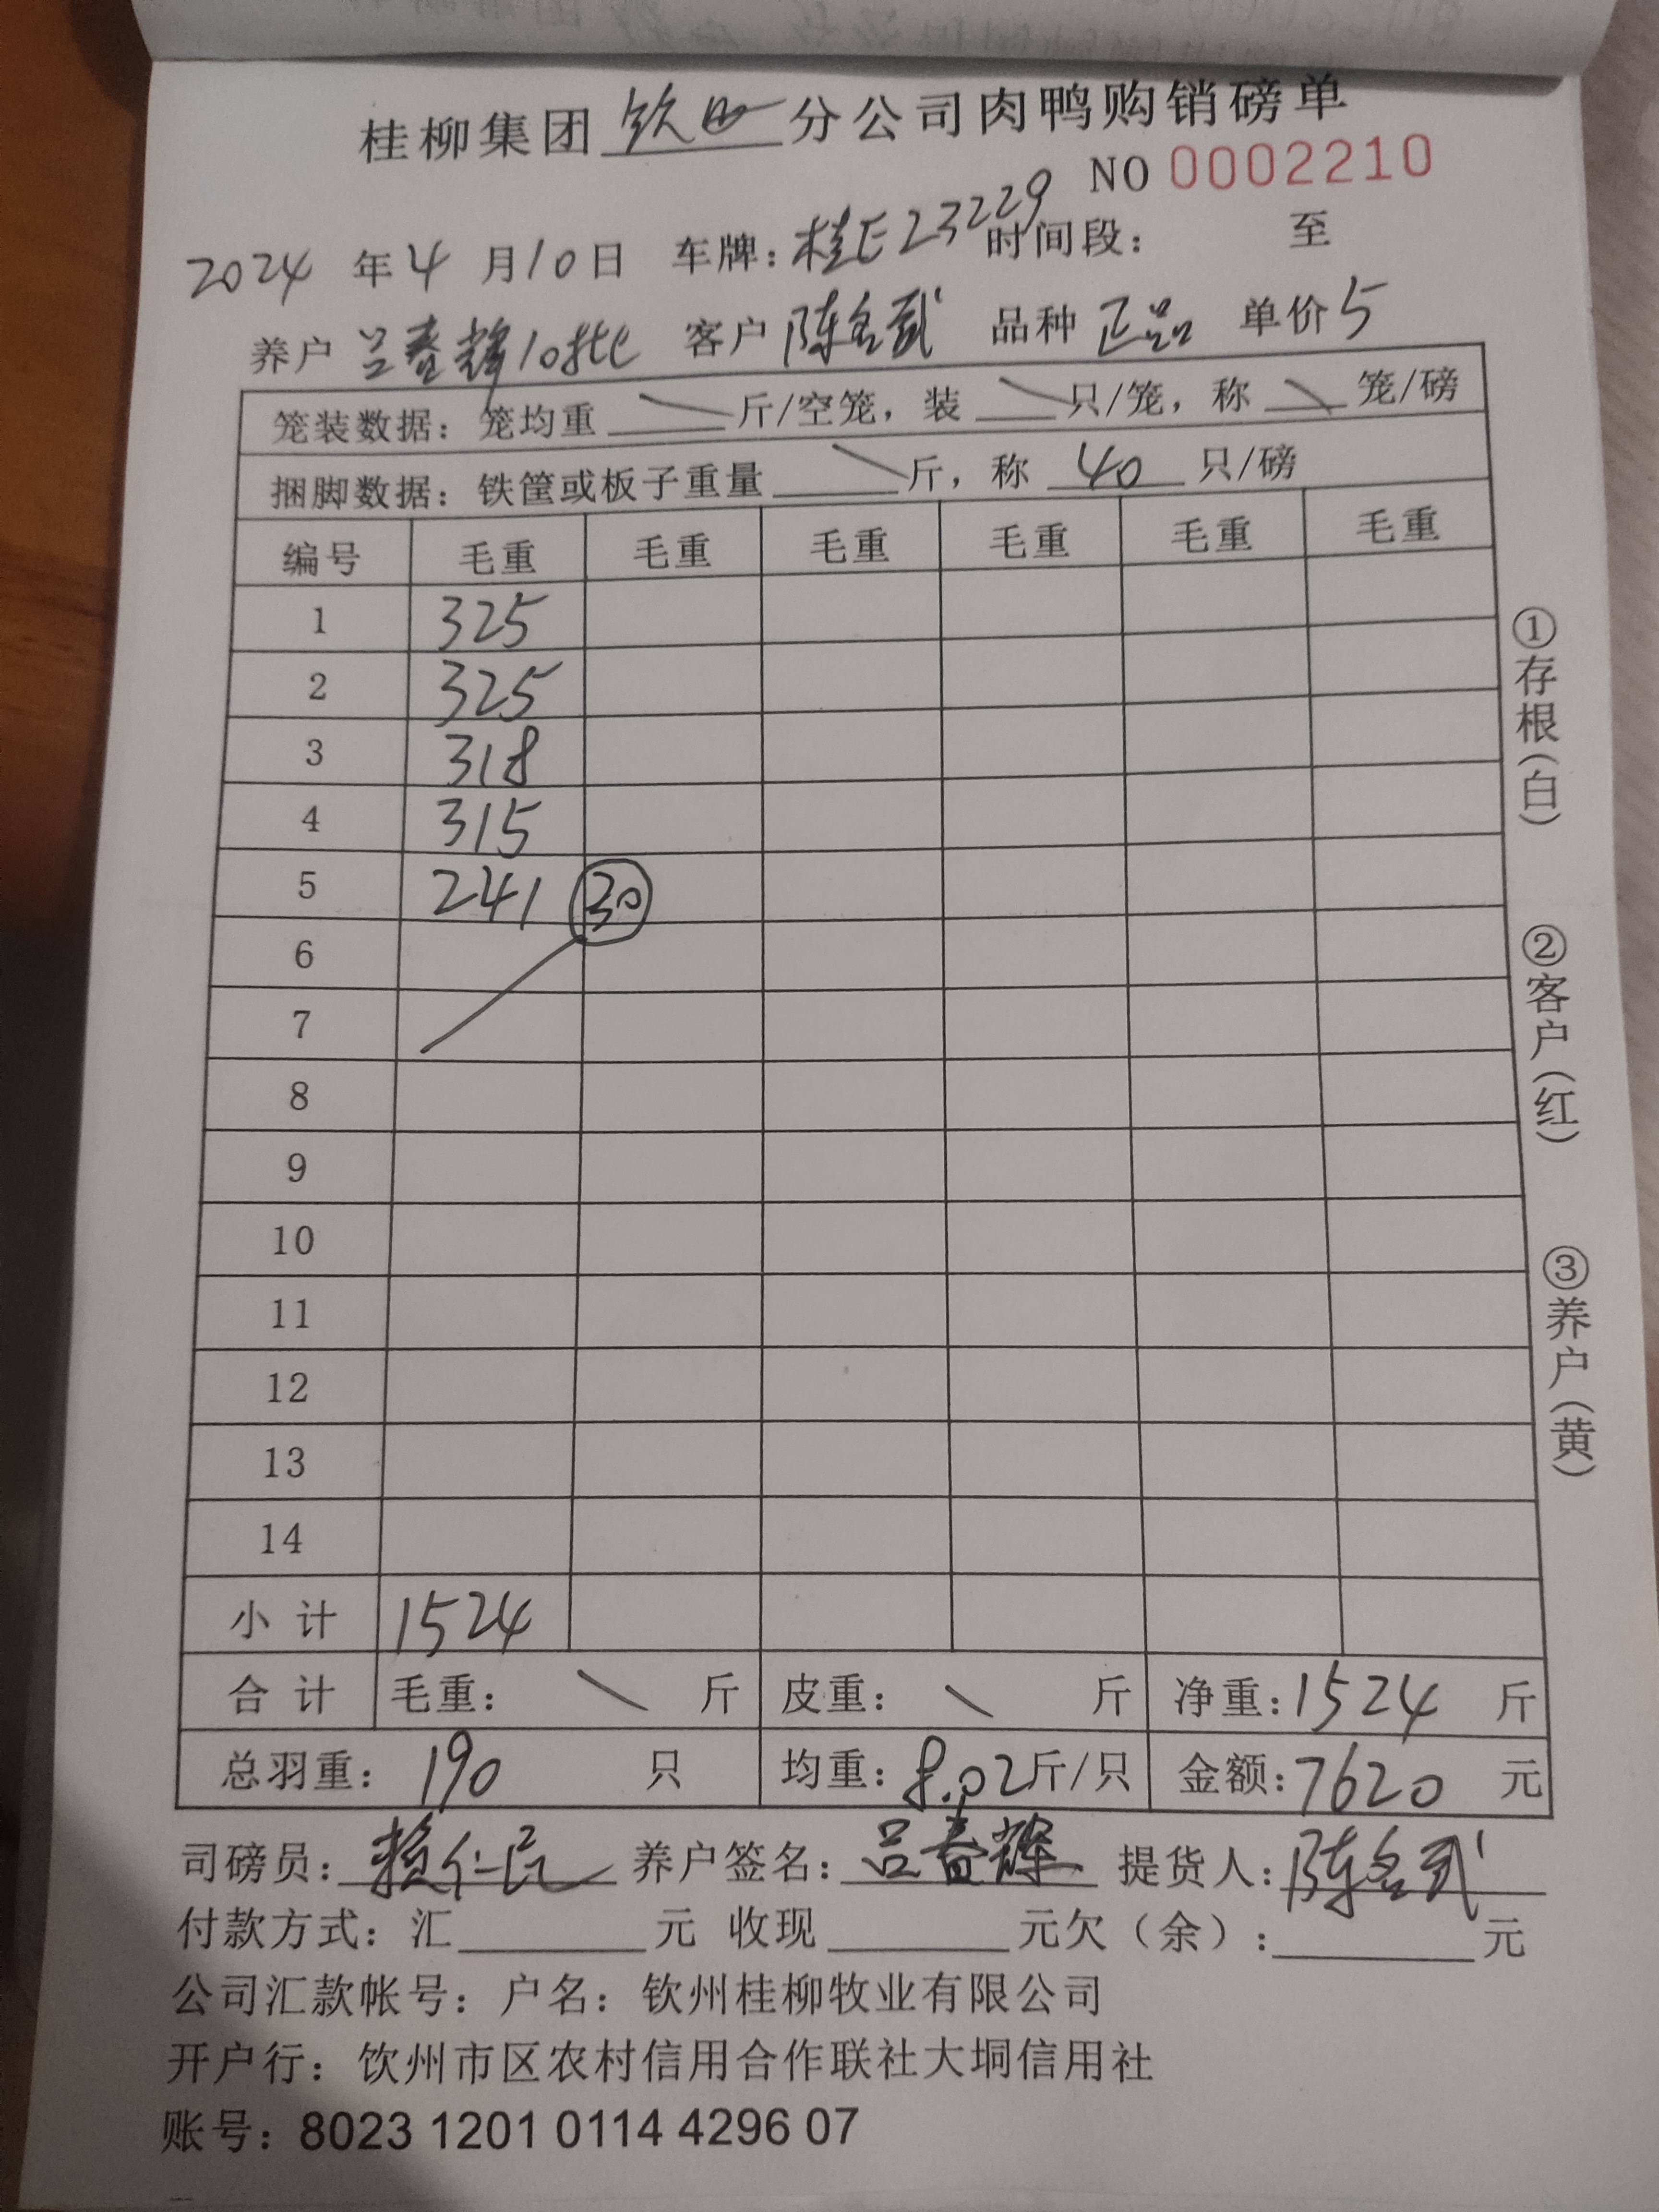 桂柳集团 钦州 分公司肉鸭购销磅单
NO 0002210
2024 年 4 月 10 日 车牌：桂E23229 时间段： 至
养户 吕春辉10批 客户 陈名贰 品种 正品 单价 5
笼装数据：笼均重 \ 斤/空笼，装 \ 只/笼，称 \ 笼/磅
捆脚数据：铁筐或板子重量 \ 斤，称 40 只/磅
编号 毛重 毛重 毛重 毛重 毛重 毛重
1 325
2 325
3 318
4 315
5 241 30
6
7
8
9
10
11
12
13
14
小计 1524
合计 毛重： \ 斤 皮重： \ 斤 净重：1524 斤
总羽重： 190 只 均重：8.02斤/只 金额：7620 元
司磅员：赖仁民 养户签名：吕春辉 提货人：陈名贰
付款方式：汇 元 收现 元欠（余）： 元
公司汇款帐号：户名：钦州桂柳牧业有限公司
开户行：饮州市区农村信用合作联社大垌信用社
账号：8023 1201 0114 4296 07
①存根（白）
②客户（红）
③养户（黄）